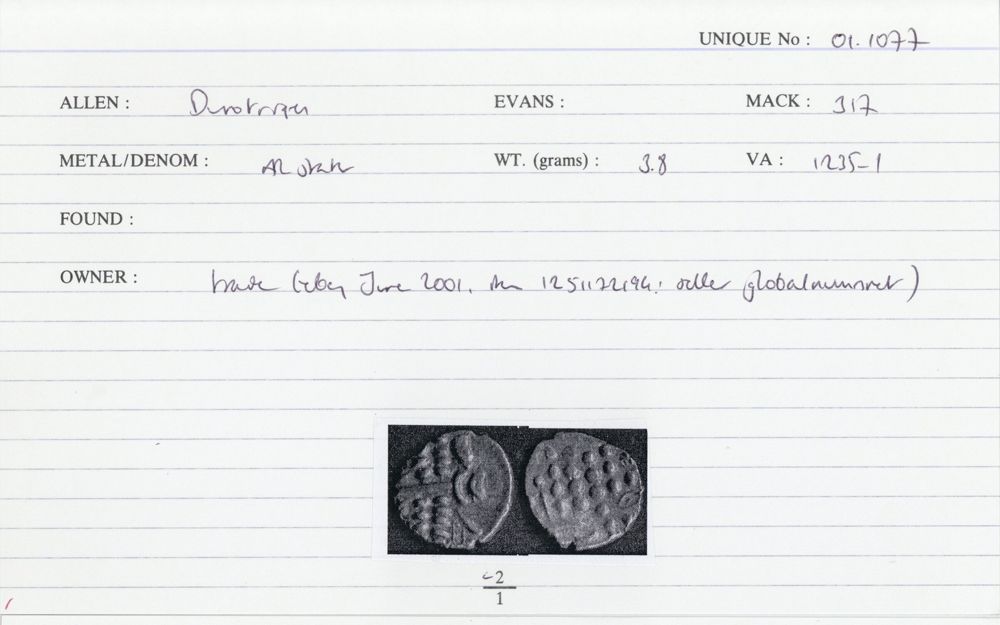 UNIQUE No : 01.1077
ALLEN : Durotriges EVANS : MACK : 317
METAL/DENOM : AR stater WT. (grams) : 3.8 VA : 1235-1
FOUND :
OWNER : trade (eBay June 2001. seller globalnumsnet)
2
1